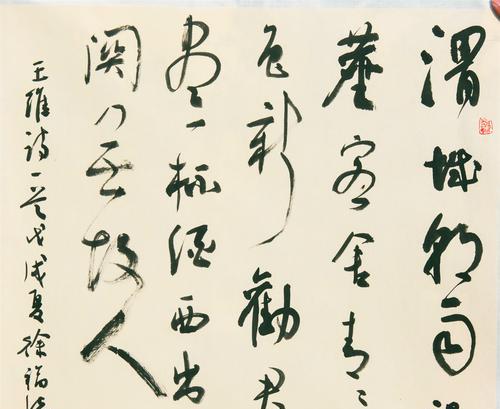 渭城朝雨
塵客舍青
色新勸君
盡一杯酒西出
關无故人
王維詩一首戊戌夏徐